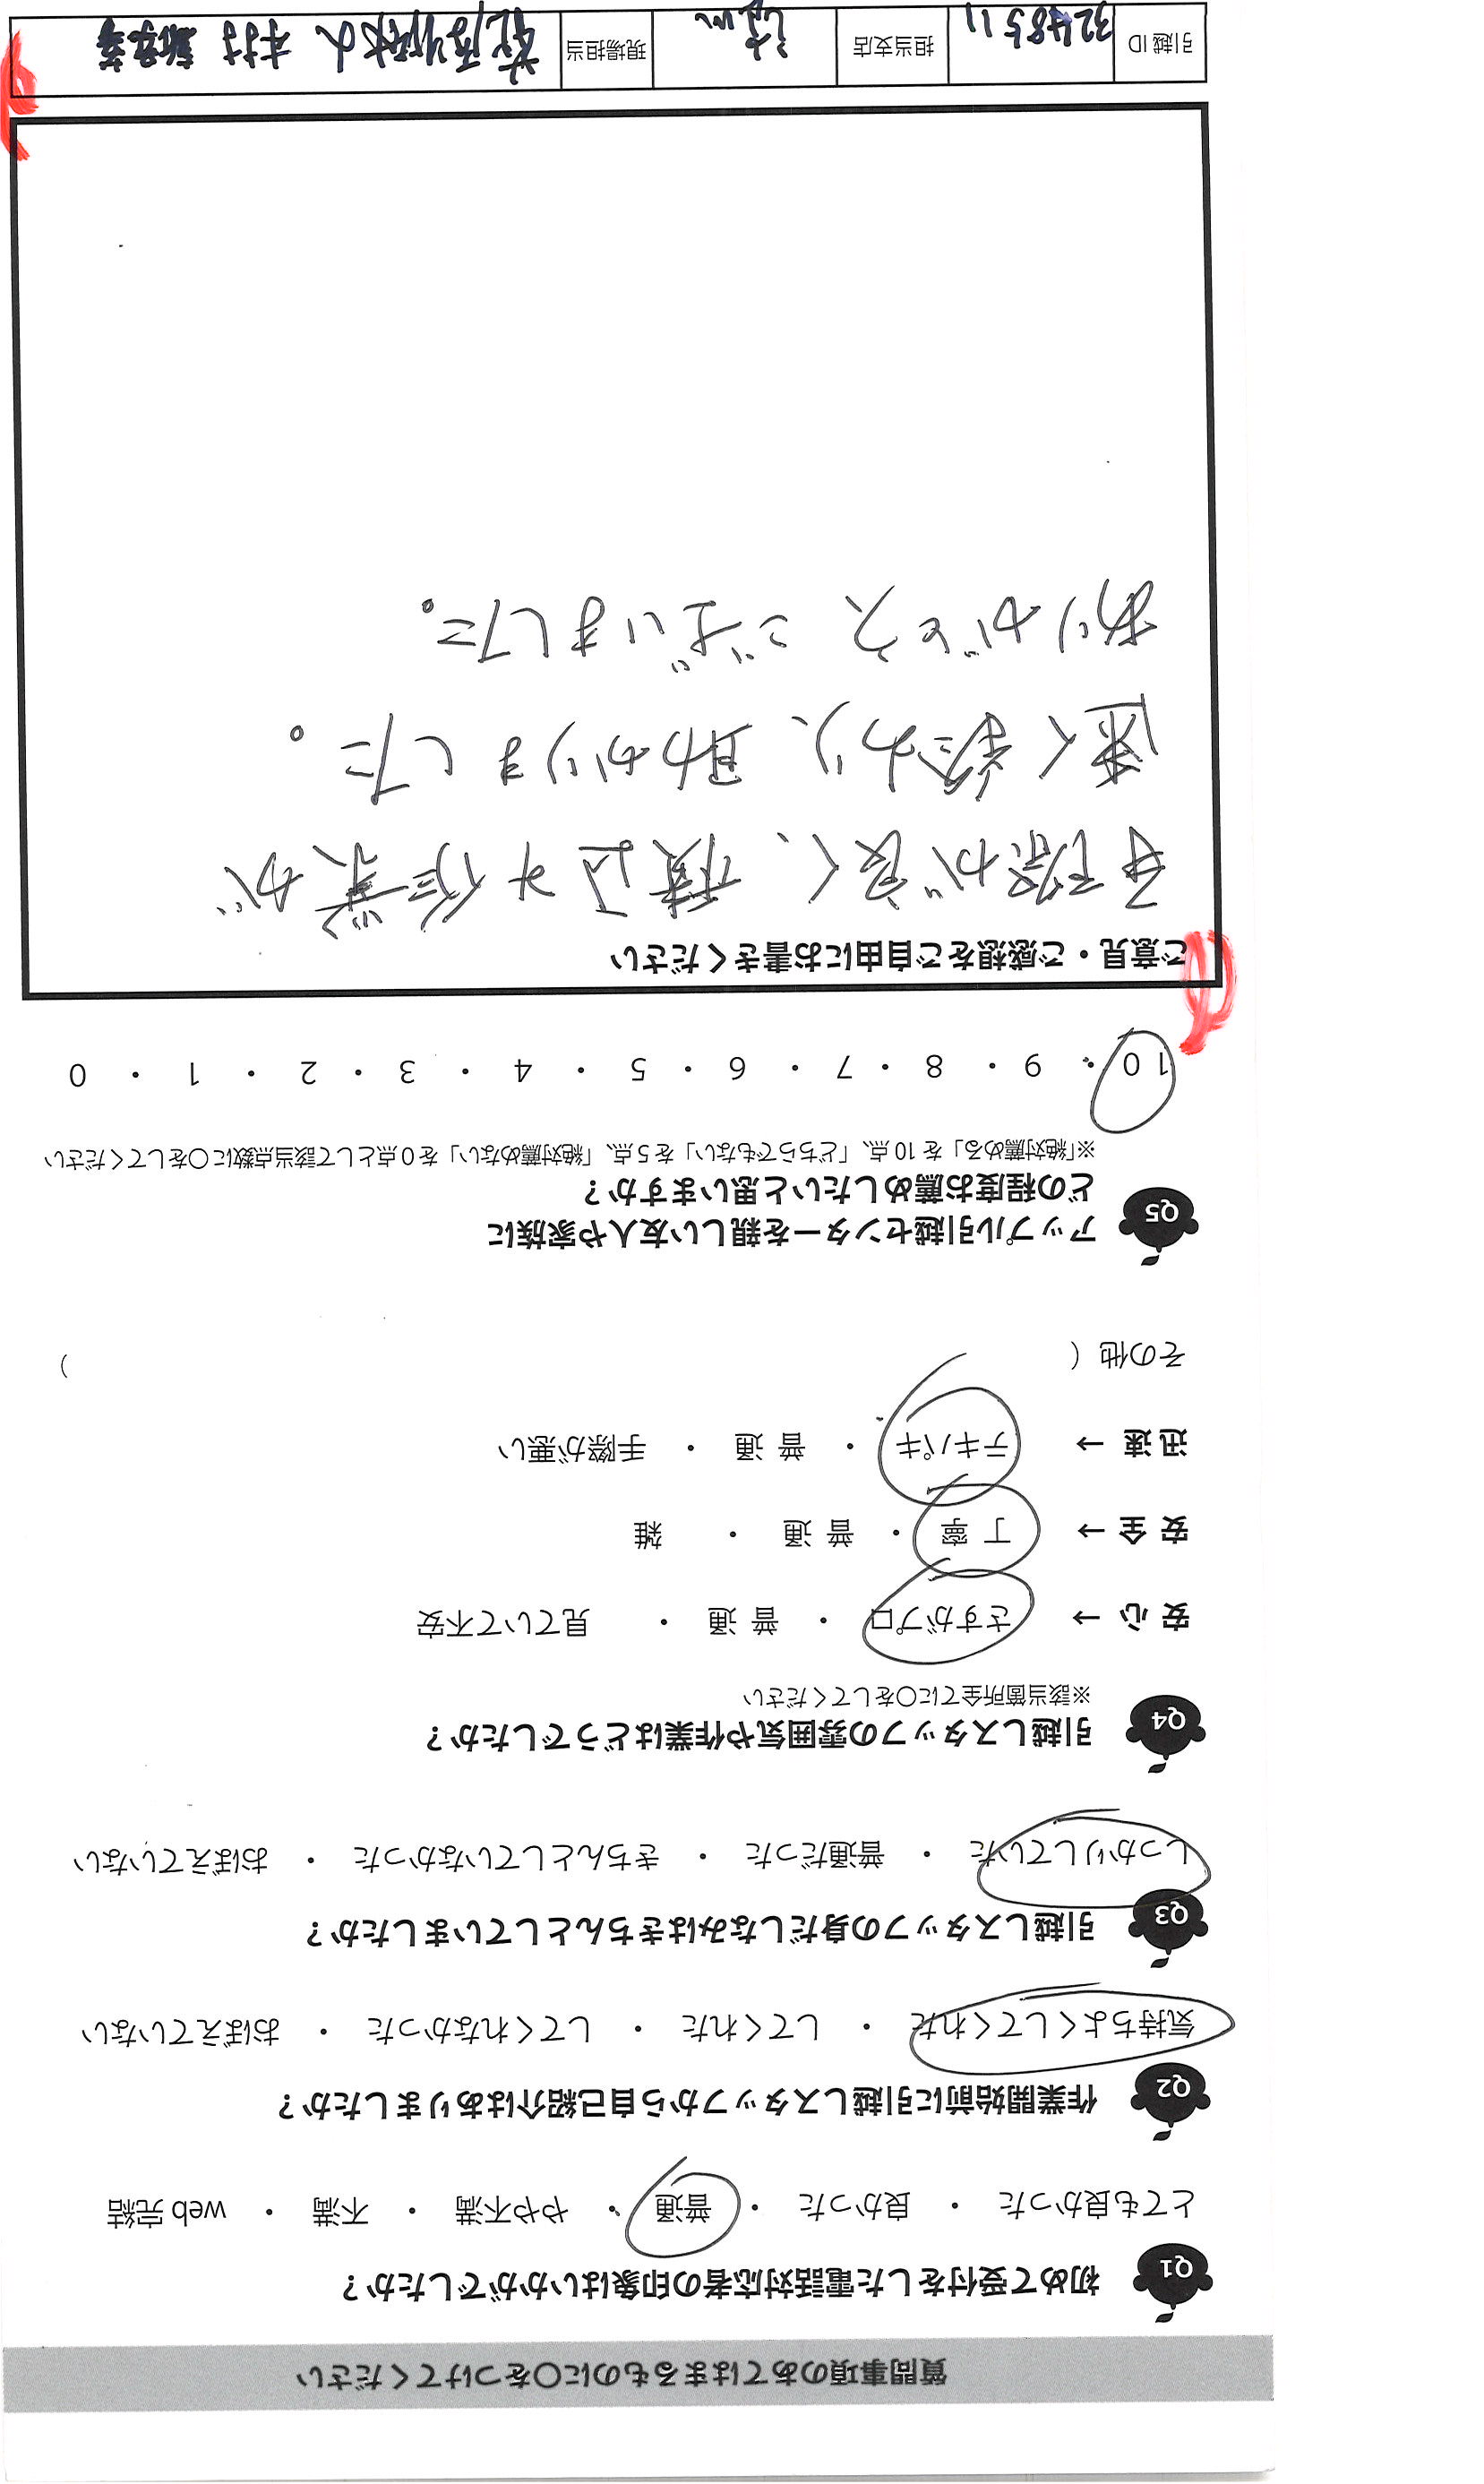 質問事項のあてはまるものに〇をつけてください
Q1 初めて受付をした電話対応者の印象はいかがでしたか？
とても良かった ・ 良かった ・ 普通 ・ やや不満 ・ 不満 ・ web 完結
Q2 作業開始前に引越しスタッフから自己紹介はありましたか？
気持ちよくしてくれた ・ してくれた ・ してくれなかった ・ おぼえていない
Q3 引越しスタッフの身だしなみはきちんとしていましたか？
しっかりしていた ・ 普通だった ・ きちんとしていなかった ・ おぼえていない
Q4 引越しスタッフの雰囲気や作業はどうでしたか？
※該当箇所全てに〇をしてください
安 心 → さすがプロ ・ 普 通 ・ 見ていて不安
安 全 → 丁 寧 ・ 普 通 ・ 雑
迅 速 → テキパキ ・ 普 通 ・ 手際が悪い
その他（ ）
Q5 アップル引越センターを親しい友人や家族に
どの程度お薦めしたいと思いますか？
※「絶対薦める」を 10 点、「どちらでもない」を 5 点、「絶対薦めない」を 0 点として該当点数に〇をしてください
10 ・ 9 ・ 8 ・ 7 ・ 6 ・ 5 ・ 4 ・ 3 ・ 2 ・ 1 ・ 0
ご意見・ご感想をご自由にお書きください
手際が良く、積込み作業が
速く終わり、助かりました。
ありがとうございました。
引越 ID 3248511 担当支店 現場担当 木村